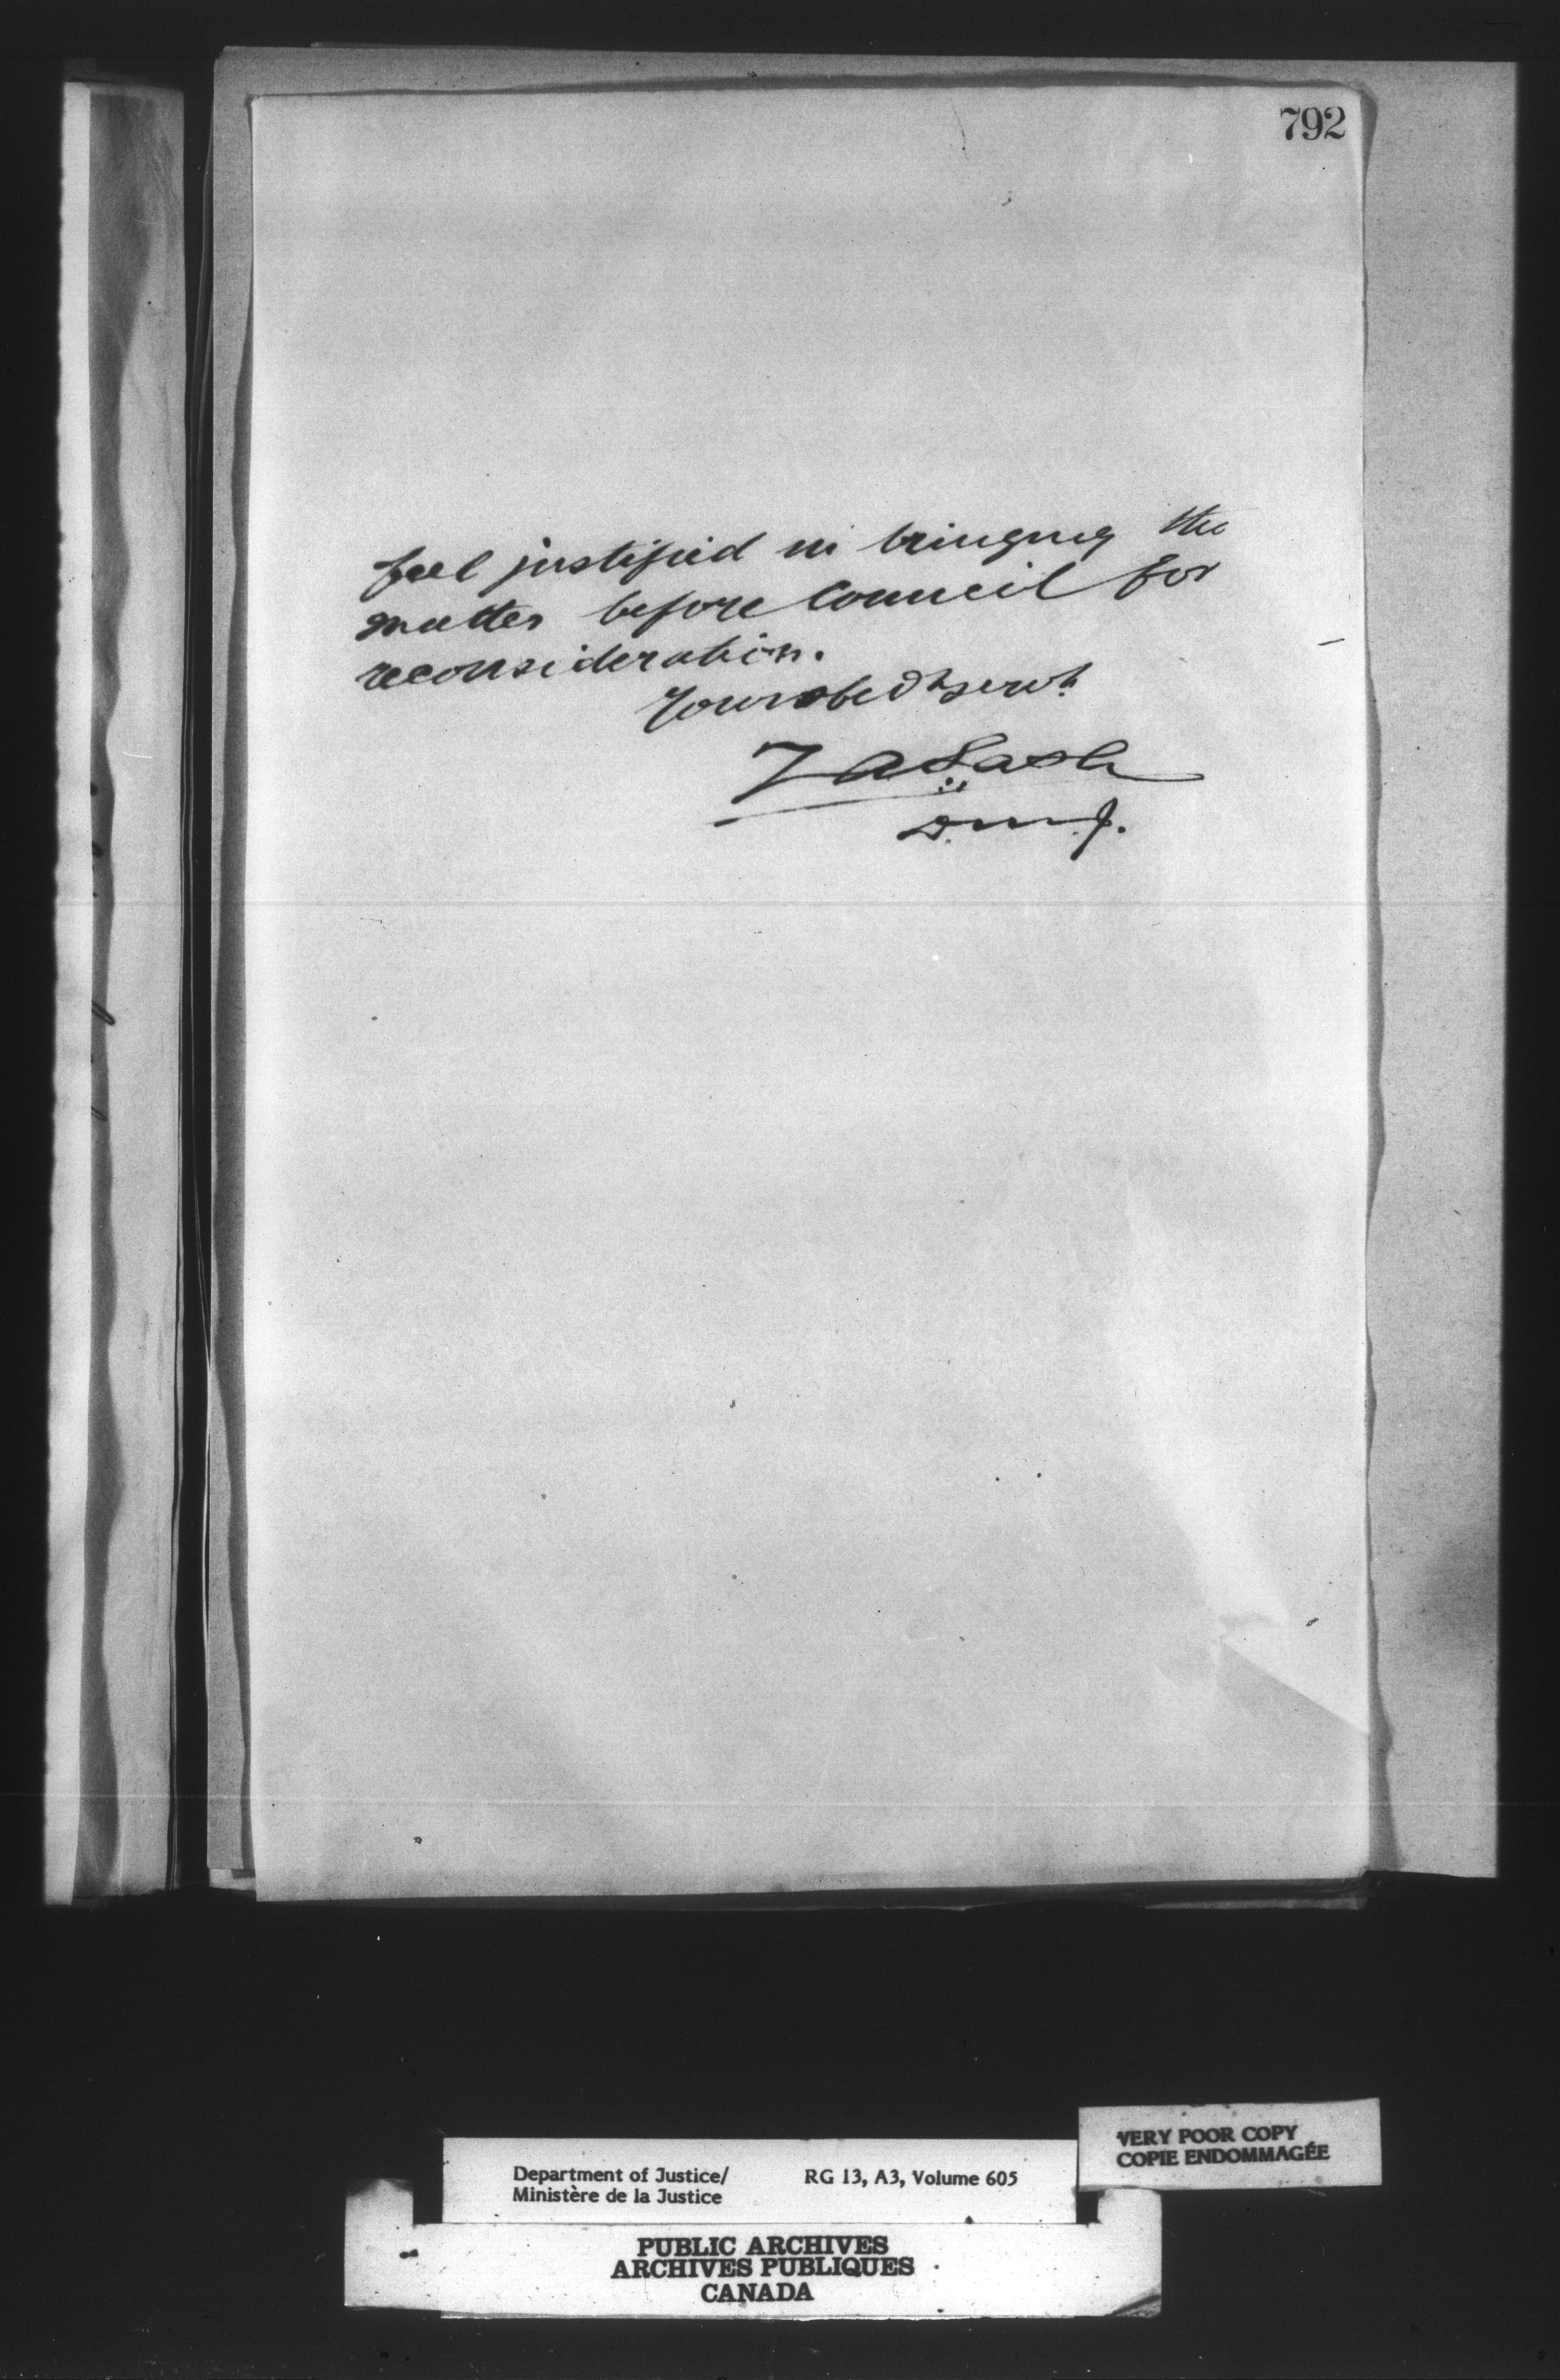 792
feel justified in bringing the
matter before Council for
reconsideration.
Your obedt servt
Z A Lash
D.M.J.
VERY POOR COPY
COPIE ENDOMMAGÉE
Department of Justice/ RG 13, A3, Volume 605
Ministère de la Justice
PUBLIC ARCHIVES
ARCHIVES PUBLIQUES
CANADA